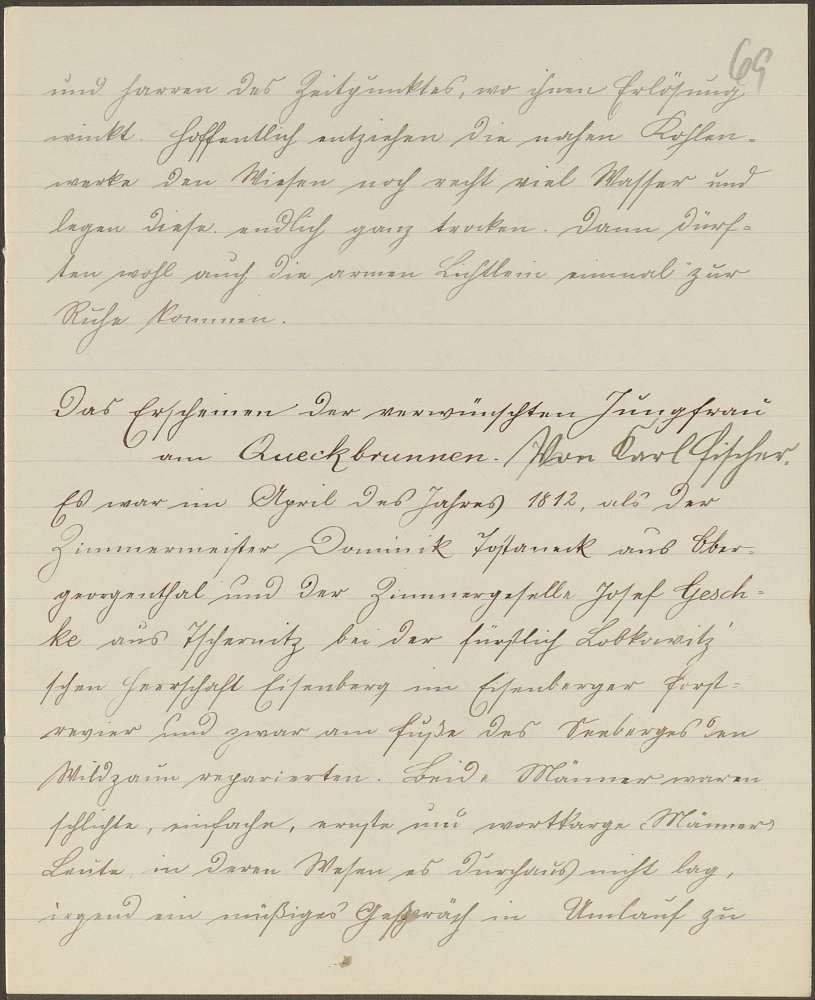 69
und harren des Zeitpunktes, wo ihnen Erlösung
winkt. Hoffentlich entziehen die nahen Kohlen-
werke den Wiesen noch recht viel Wasser und
legen diese endlich ganz trocken. Dann dürf-
ten wohl auch die armen Lichtlein einmal zur
Ruhe kommen.
Das Erscheinen der verwünschten Jungfrau
am Queckbrunnen. Von Karl Fischer.
Es war im April des Jahres 1812, als der
Zimmermeister Dominik Tostaneck aus Ober-
georgenthal und der Zimmergeselle Josef Gesch-
ke aus Tschernitz bei der fürstlich Lobkowitz'
schen Herrschaft Eisenberg im Eisenberger Forst-
revier und zwar am Fuße des Seeberges den
Wildzaun reparierten. Beide Männer waren
schlichte, einfache, ernste und wortkarge Männer
Leute, in deren Wesen es durchaus nicht lag,
irgend ein müßiges Gespräch in Umlauf zu